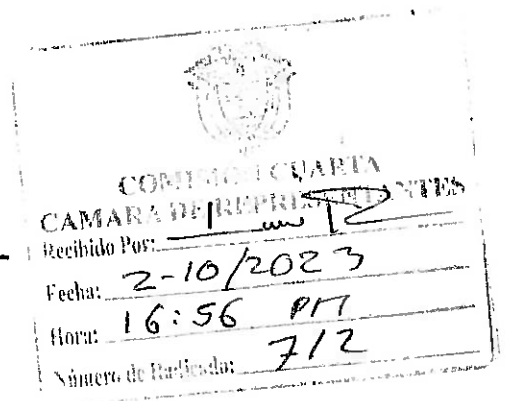 COMISION CUARTA
CAMARA DE REPRESENTANTES
Recibido Por:
Fecha: 2-10/2023
Hora: 16:56 PM
Número de Radicado: 712